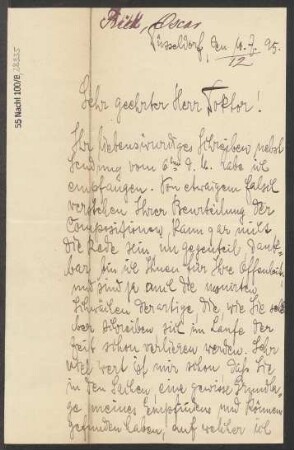 Bieck, Oscar
Düsseldorf, den 10.7. 95.
12
Sehr geehrter Herr Doktor!
Ihr liebenswürdiges Schreiben nebst
Sendung vom 6ten d. M. habe ich
empfangen. Von etwaigem falsch
verstehen Ihrer Beurteilung der
Compositionen, kann gar nicht
die Rede sein im Gegenteil dank-
bar bin ich Ihnen für Ihre Offenheit,
und sind ja auch die meisten
Schwächen derartige, die, wie Sie sel-
ber schreiben sich im Laufe der
Zeit schon verlieren werden. Sehr
viel wert ist mir schon, daß Sie
in den Sachen, eine gewisse Grundla-
ge meines Empfindens und Können
gefunden haben, auf welcher ich
55 Nachl 100/B